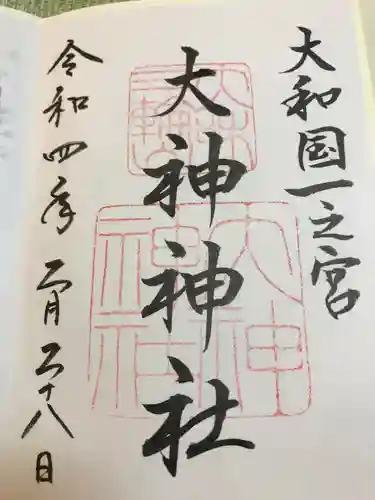 大和国一之宮
大神神社
令和四年二月二十八日
三輪明神
大神神社